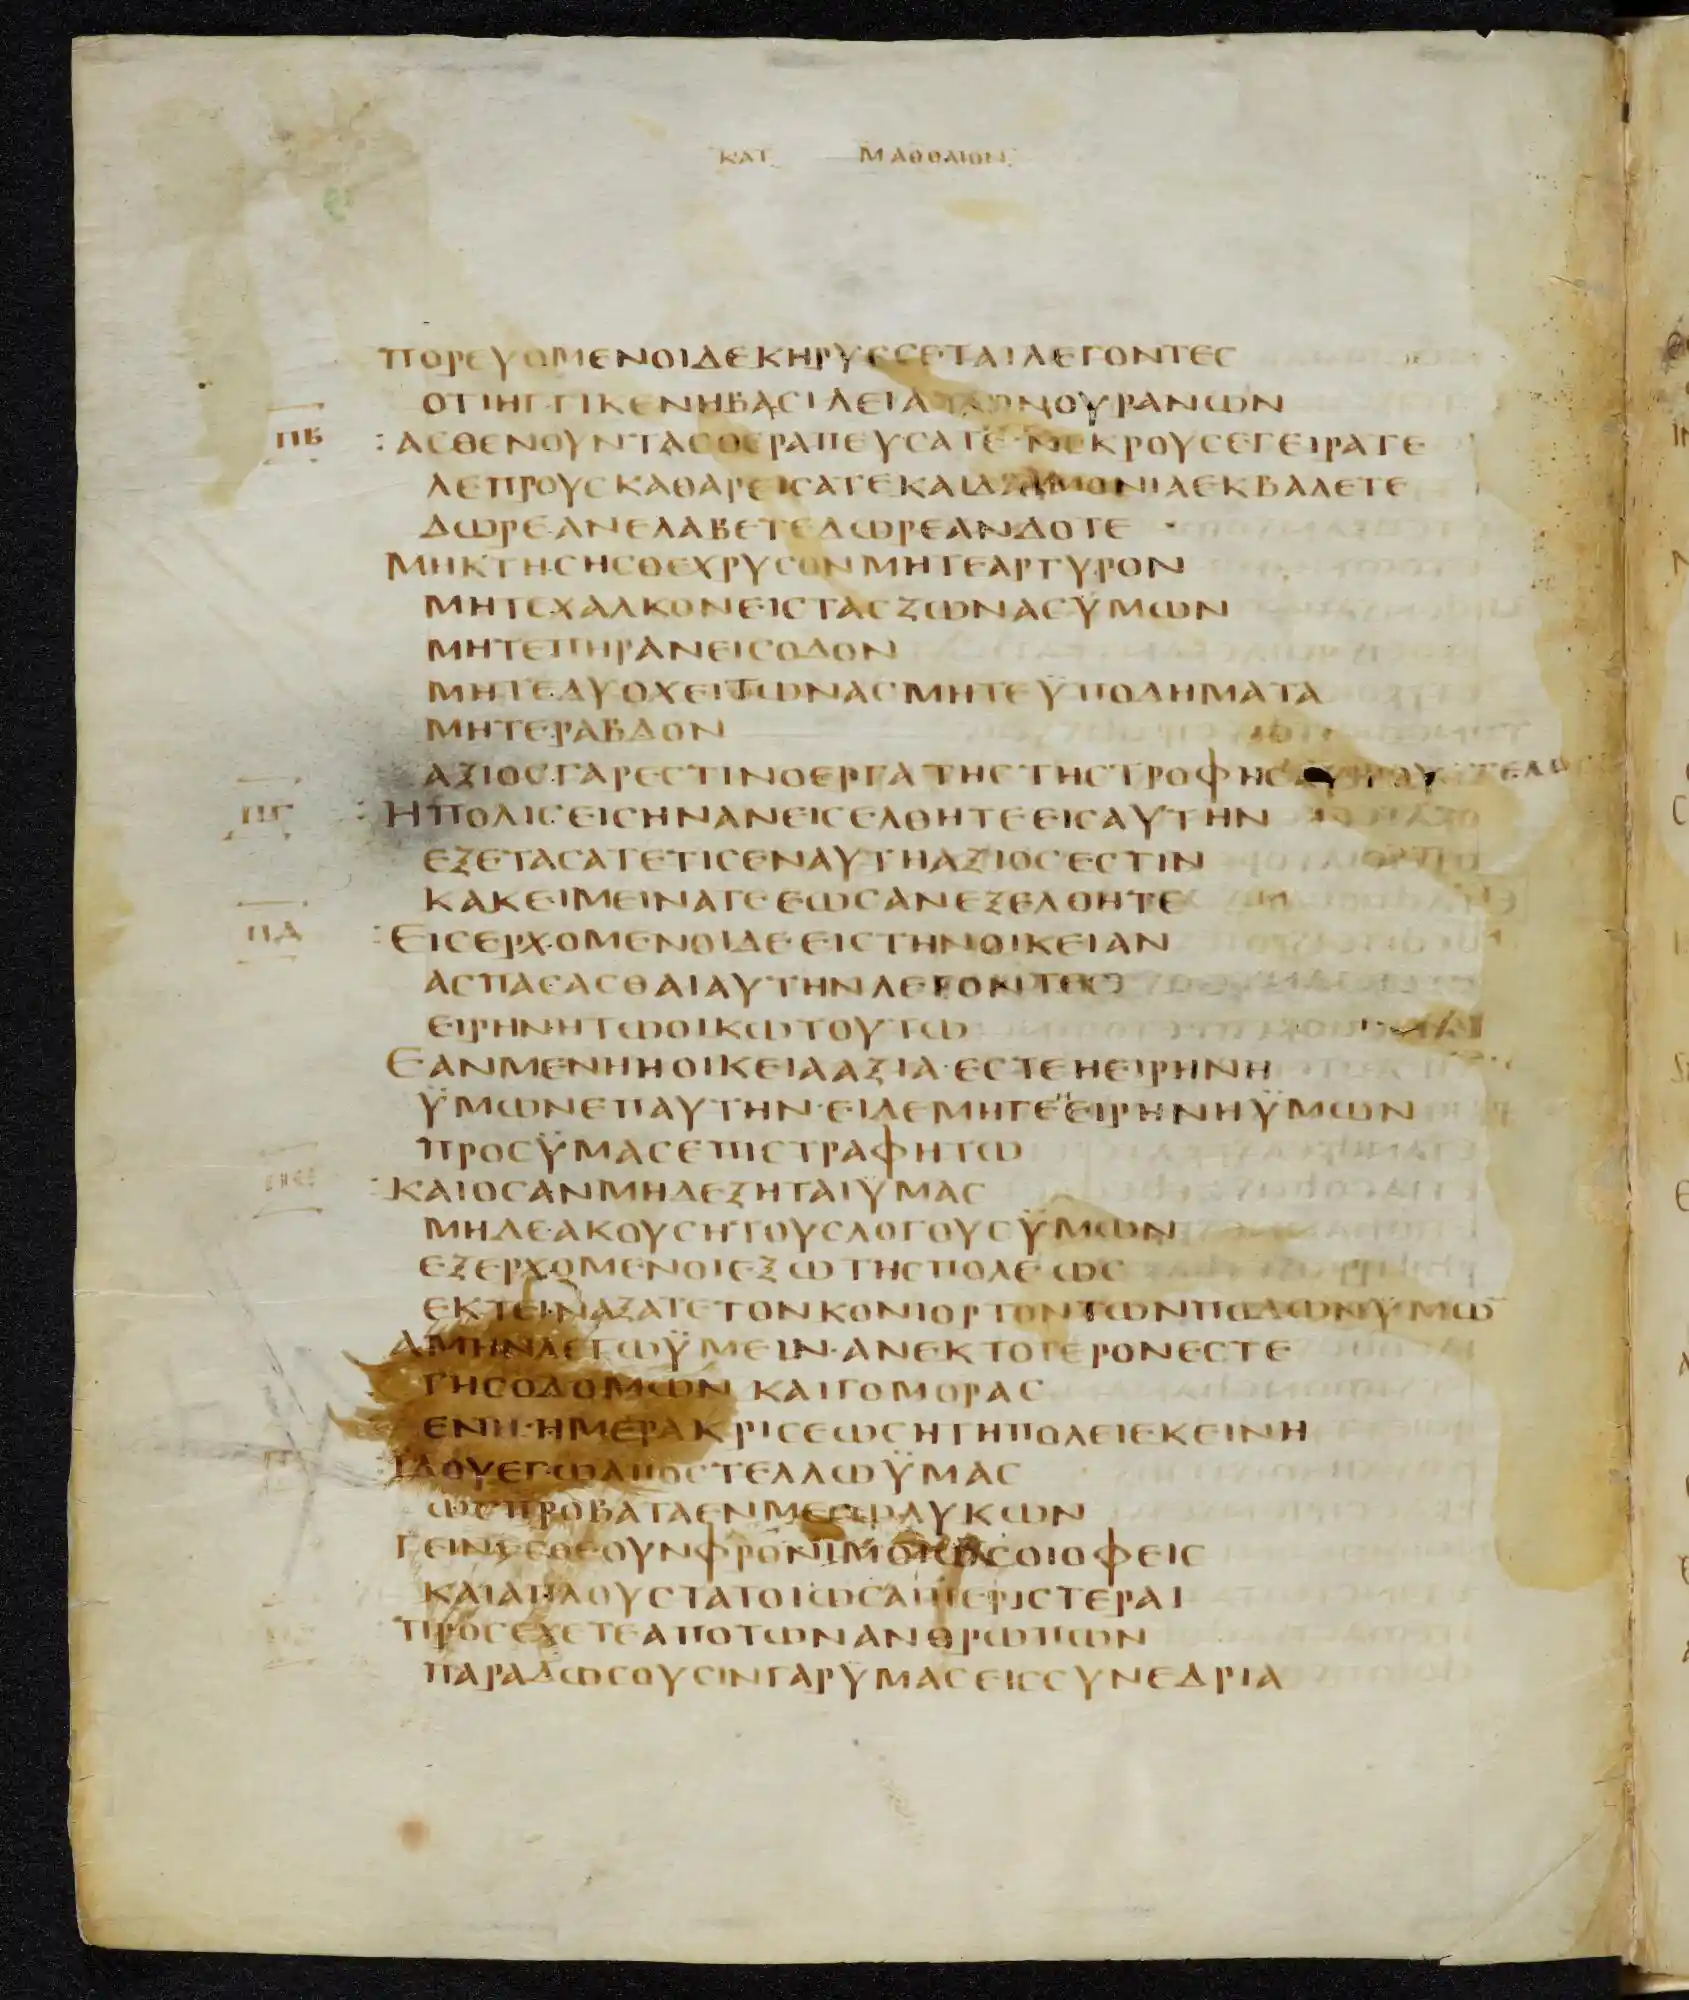 ΚΑΤ ΜΑΘΘΑΙΟΝ
ΠΟΡΕΥΟΜΕΝΟΙΔΕΚΗΡΥΣΣΕΤΑΙΛΕΓΟΝΤΕΣ
ΟΤΙΗΓΓΙΚΕΝΗΒΑΣΙΛΕΙΑΤΩΝΟΥΡΑΝΩΝ
ΠΒ :ΑΣΘΕΝΟΥΝΤΑΣΘΕΡΑΠΕΥΣΑΤΕ·ΝΕΚΡΟΥΣΕΓΕΙΡΑΤΕ
ΛΕΠΡΟΥΣΚΑΘΑΡΕΙΣΑΤΕΚΑΙΔΑΙΜΟΝΙΑΕΚΒΑΛΕΤΕ
ΔΩΡΕΑΝΕΛΑΒΕΤΕΔΩΡΕΑΝΔΟΤΕ ·
ΜΗΚΤΗΣΗΣΘΕΧΡΥΣΟΝΜΗΤΕΑΡΓΥΡΟΝ
ΜΗΤΕΧΑΛΚΟΝΕΙΣΤΑΣΖΩΝΑΣΫΜΩΝ
ΜΗΤΕΠΗΡΑΝΕΙΣΟΔΟΝ
ΜΗΤΕΔΥΟΧΕΙΤΩΝΑΣΜΗΤΕΫΠΟΔΗΜΑΤΑ
ΜΗΤΕΡΑΒΔΟΝ
ΑΞΙΟΣΓΑΡΕΣΤΙΝΟΕΡΓΑΤΗΣΤΗΣΤΡΟΦΗΣΑΥΤΟΥ
ΠΓ :ΗΠΟΛΙΣΕΙΣΗΝΑΝΕΙΣΕΛΘΗΤΕΕΙΣΑΥΤΗΝ
ΕΞΕΤΑΣΑΤΕΤΙΣΕΝΑΥΤΗΑΞΙΟΣΕΣΤΙΝ
ΚΑΚΕΙΜΕΙΝΑΤΕΕΩΣΑΝΕΞΕΛΘΗΤΕ
ΠΔ :ΕΙΣΕΡΧΟΜΕΝΟΙΔΕΕΙΣΤΗΝΟΙΚΕΙΑΝ
ΑΣΠΑΣΑΣΘΑΙΑΥΤΗΝΛΕΓΟΝΤΕΣ
ΕΙΡΗΝΗΤΩΟΙΚΩΤΟΥΤΩ
ΕΑΝΜΕΝΗΗΟΙΚΕΙΑΑΞΙΑ·ΕΣΤΕΗΕΙΡΗΝΗ
ΫΜΩΝΕΠΑΥΤΗΝ·ΕΙΔΕΜΗΓΕΕΙΡΗΝΗΫΜΩΝ
ΠΡΟΣΫΜΑΣΕΠΙΣΤΡΑΦΗΤΩ
ΠΕ :ΚΑΙΟΣΑΝΜΗΔΕΞΗΤΑΙΫΜΑΣ
ΜΗΔΕΑΚΟΥΣΗΤΟΥΣΛΟΓΟΥΣΫΜΩΝ
ΕΞΕΡΧΟΜΕΝΟΙΕΞΩΤΗΣΠΟΛΕΩΣ
ΕΚΤΕΙΝΑΞΑΤΕΤΟΝΚΟΝΙΟΡΤΟΝΤΩΝΠΟΔΩΝΥΜΩ̅
ΑΜΗΝΛΕΓΩΫΜΕΙΝ·ΑΝΕΚΤΟΤΕΡΟΝΕΣΤΕ
ΓΗΣΟΔΟΜΩΝ ΚΑΙΓΟΜΟΡΑΣ
ΕΝΤΗ·ΗΜΕΡΑΚΡΙΣΕΩΣΗΤΗΠΟΛΕΙΕΚΕΙΝΗ
:ΪΔΟΥΕΓΩΑΠΟΣΤΕΛΛΩΫΜΑΣ
ΩΣΠΡΟΒΑΤΑΕΝΜΕΣΩΛΥΚΩΝ
ΓΕΙΝΕΣΘΕΟΥΝΦΡΟΝΙΜΟΙΩΣΟΙΟΦΕΙΣ
ΚΑΙΑΠΛΟΥΣΤΑΤΟΙΩΣΑΙΠΕΡΙΣΤΕΡΑΙ
ΠΡΟΣΕΧΕΤΕΑΠΟΤΩΝΑΝΘΡΩΠΩΝ
ΠΑΡΑΔΩΣΟΥΣΙΝΓΑΡΥΜΑΣΕΙΣΣΥΝΕΔΡΙΑ